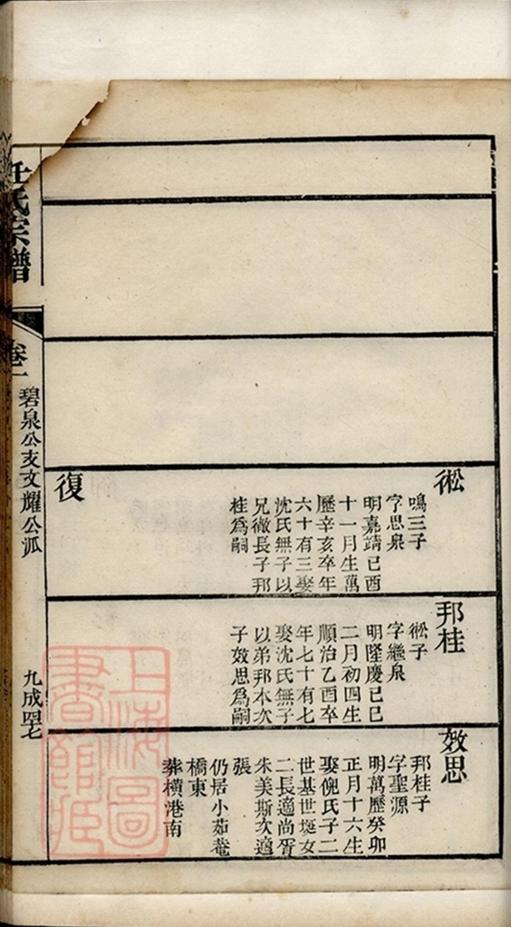 崧
鳴三子
字思泉
明嘉靖己酉
十一月生萬
歷辛亥卒年
六十有三娶
沈氏無子以
兄徵長子邦
桂爲嗣
復
邦桂
崧子
字繼泉
明隆慶己巳
二月初四生
順治乙酉卒
年七十有七
娶沈氏無子
以弟邦本次
子效思爲嗣
效思
邦桂子
字聖源
明萬歷癸卯
正月十六生
娶倪氏子二
世基世埏女
二長適尚胥
朱美斯次適
張
仍居小茹菴
橋東
葬橫港南
氏宗譜
卷一
碧泉公支文耀公派
九成
上海圖書館